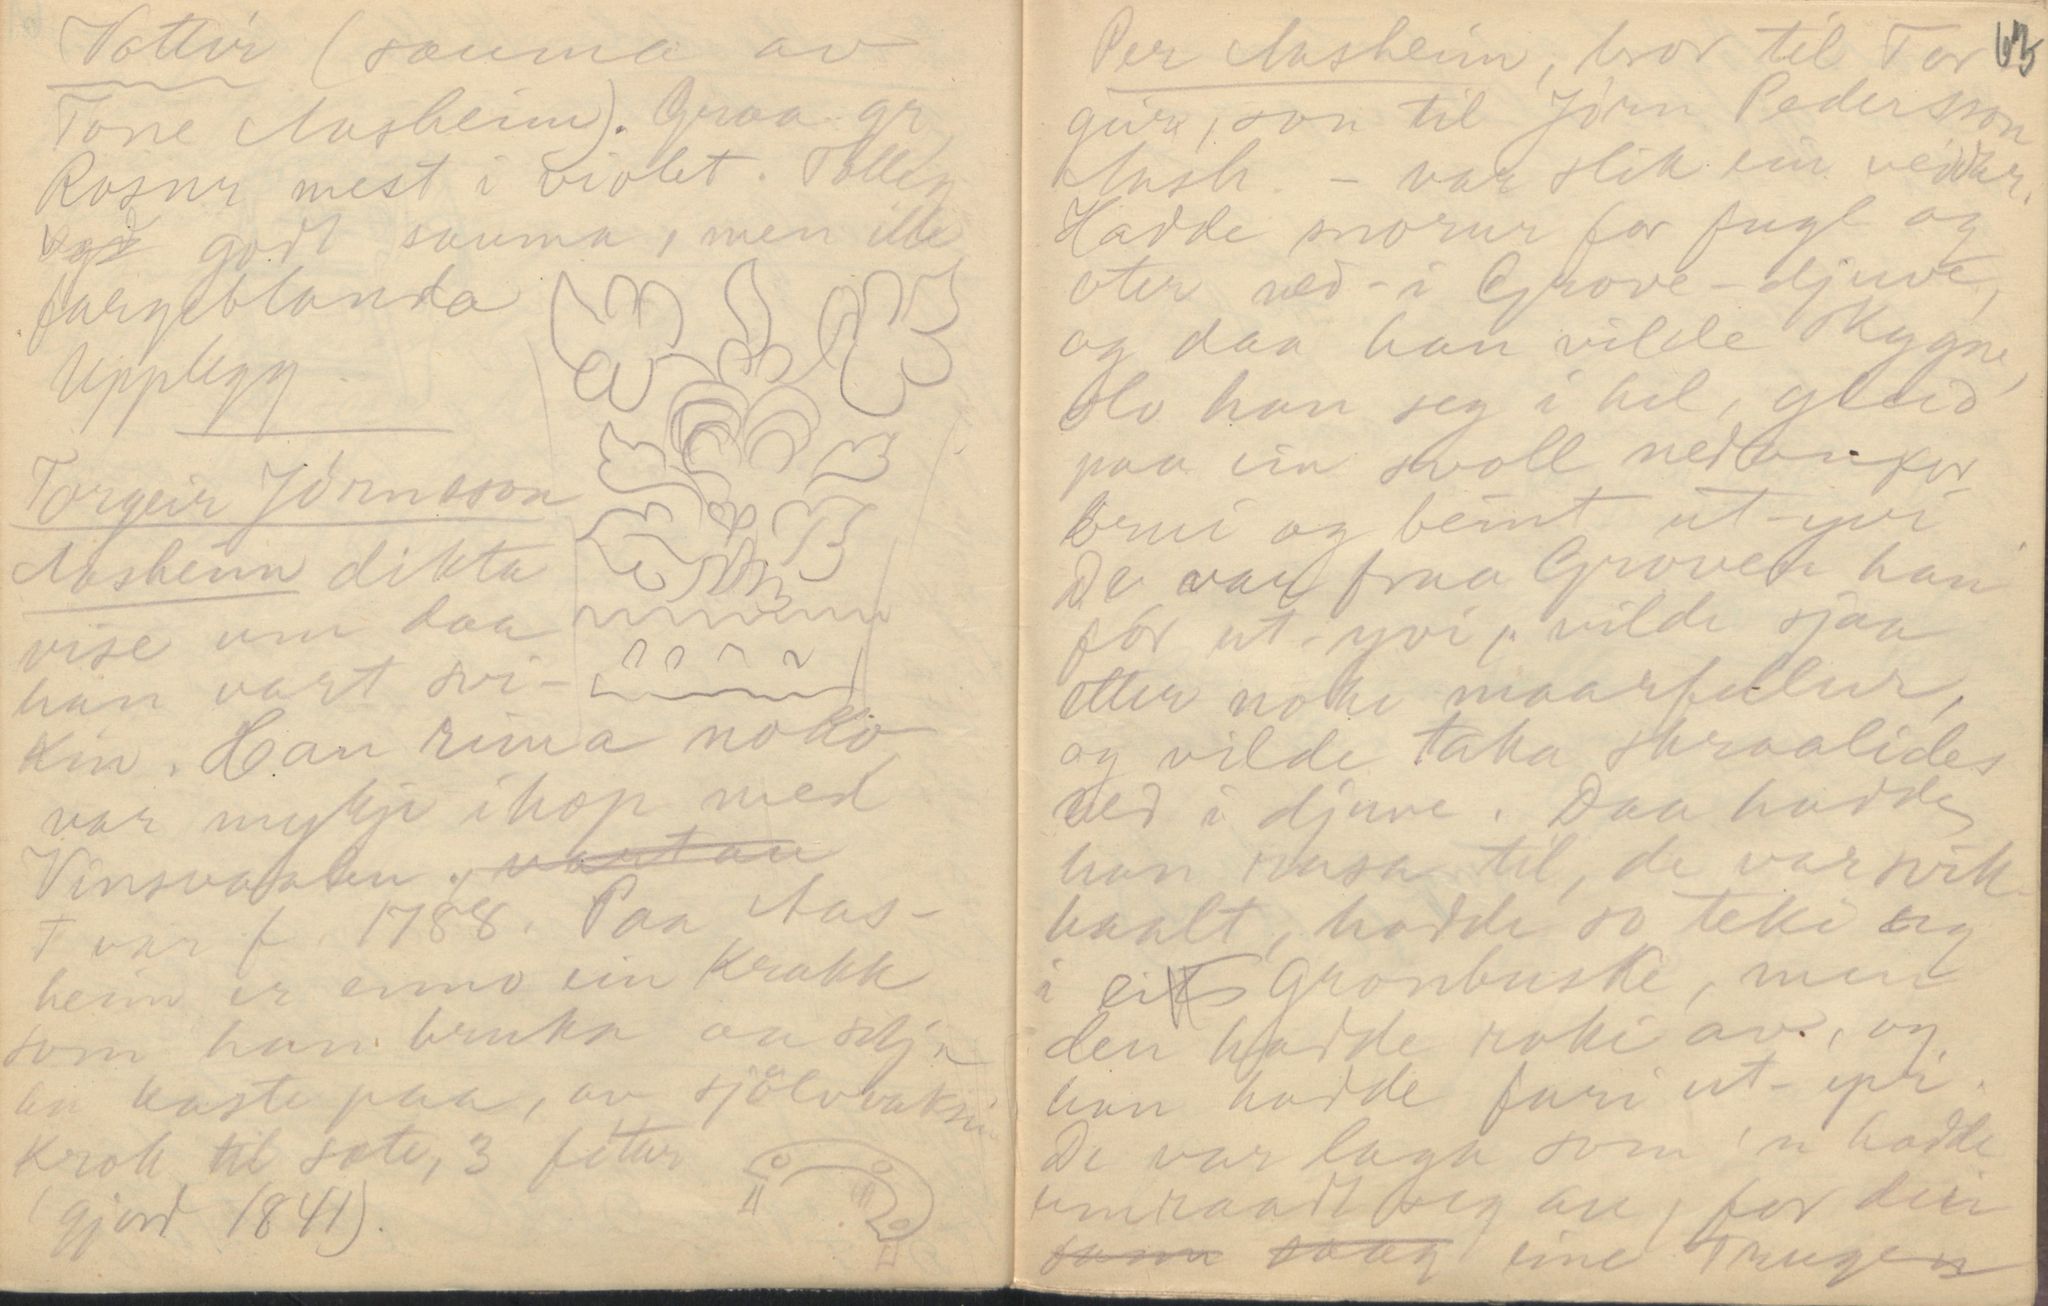 Vottir (sauma av
Tone Aasheim). Graa gr
Rosur mest i violet.
godt sauma, men ille
fargeblanda
Upplegg
Torgeir Jörnsson
Aasheim dikta
vise um daa
han vart svi-
kin. Han rima noko
var mykje ihop med
Vinsvaalen. vart au
T var f. 1788. Paa Aas-
heim er enno ein Krakk
som han bruka aa
kaste paa, av sjölvvaksin
Krok til sæte, 3 føtur
(gjord 1841).
63
Per Aasheim, bror til Tor
geir, son til Jörn Pedersson
Aash. - var slik ein veidar.
Hadde snorur for fugl og
oter ned-i Grove-djuve,
og daa han vilde skygne,
slo han seg i hel, gleid
paa ein svoll nedanfor
brui og beint ut-yvi
De var fraa Groven han
för ut-yvi, vilde sjaa
etter noki maarfellur,
og vilde taka skraalides
ned i djuve. Daa hadde
han rusa til, de var svik-
haalt, hadde so teki seg
i ein Gronbuske, men
den hadde roki av, og
han hadde fari ut-yvi.
De var laga som 'n hadde
umraadt seg au, for dei
som saag eine Trugen